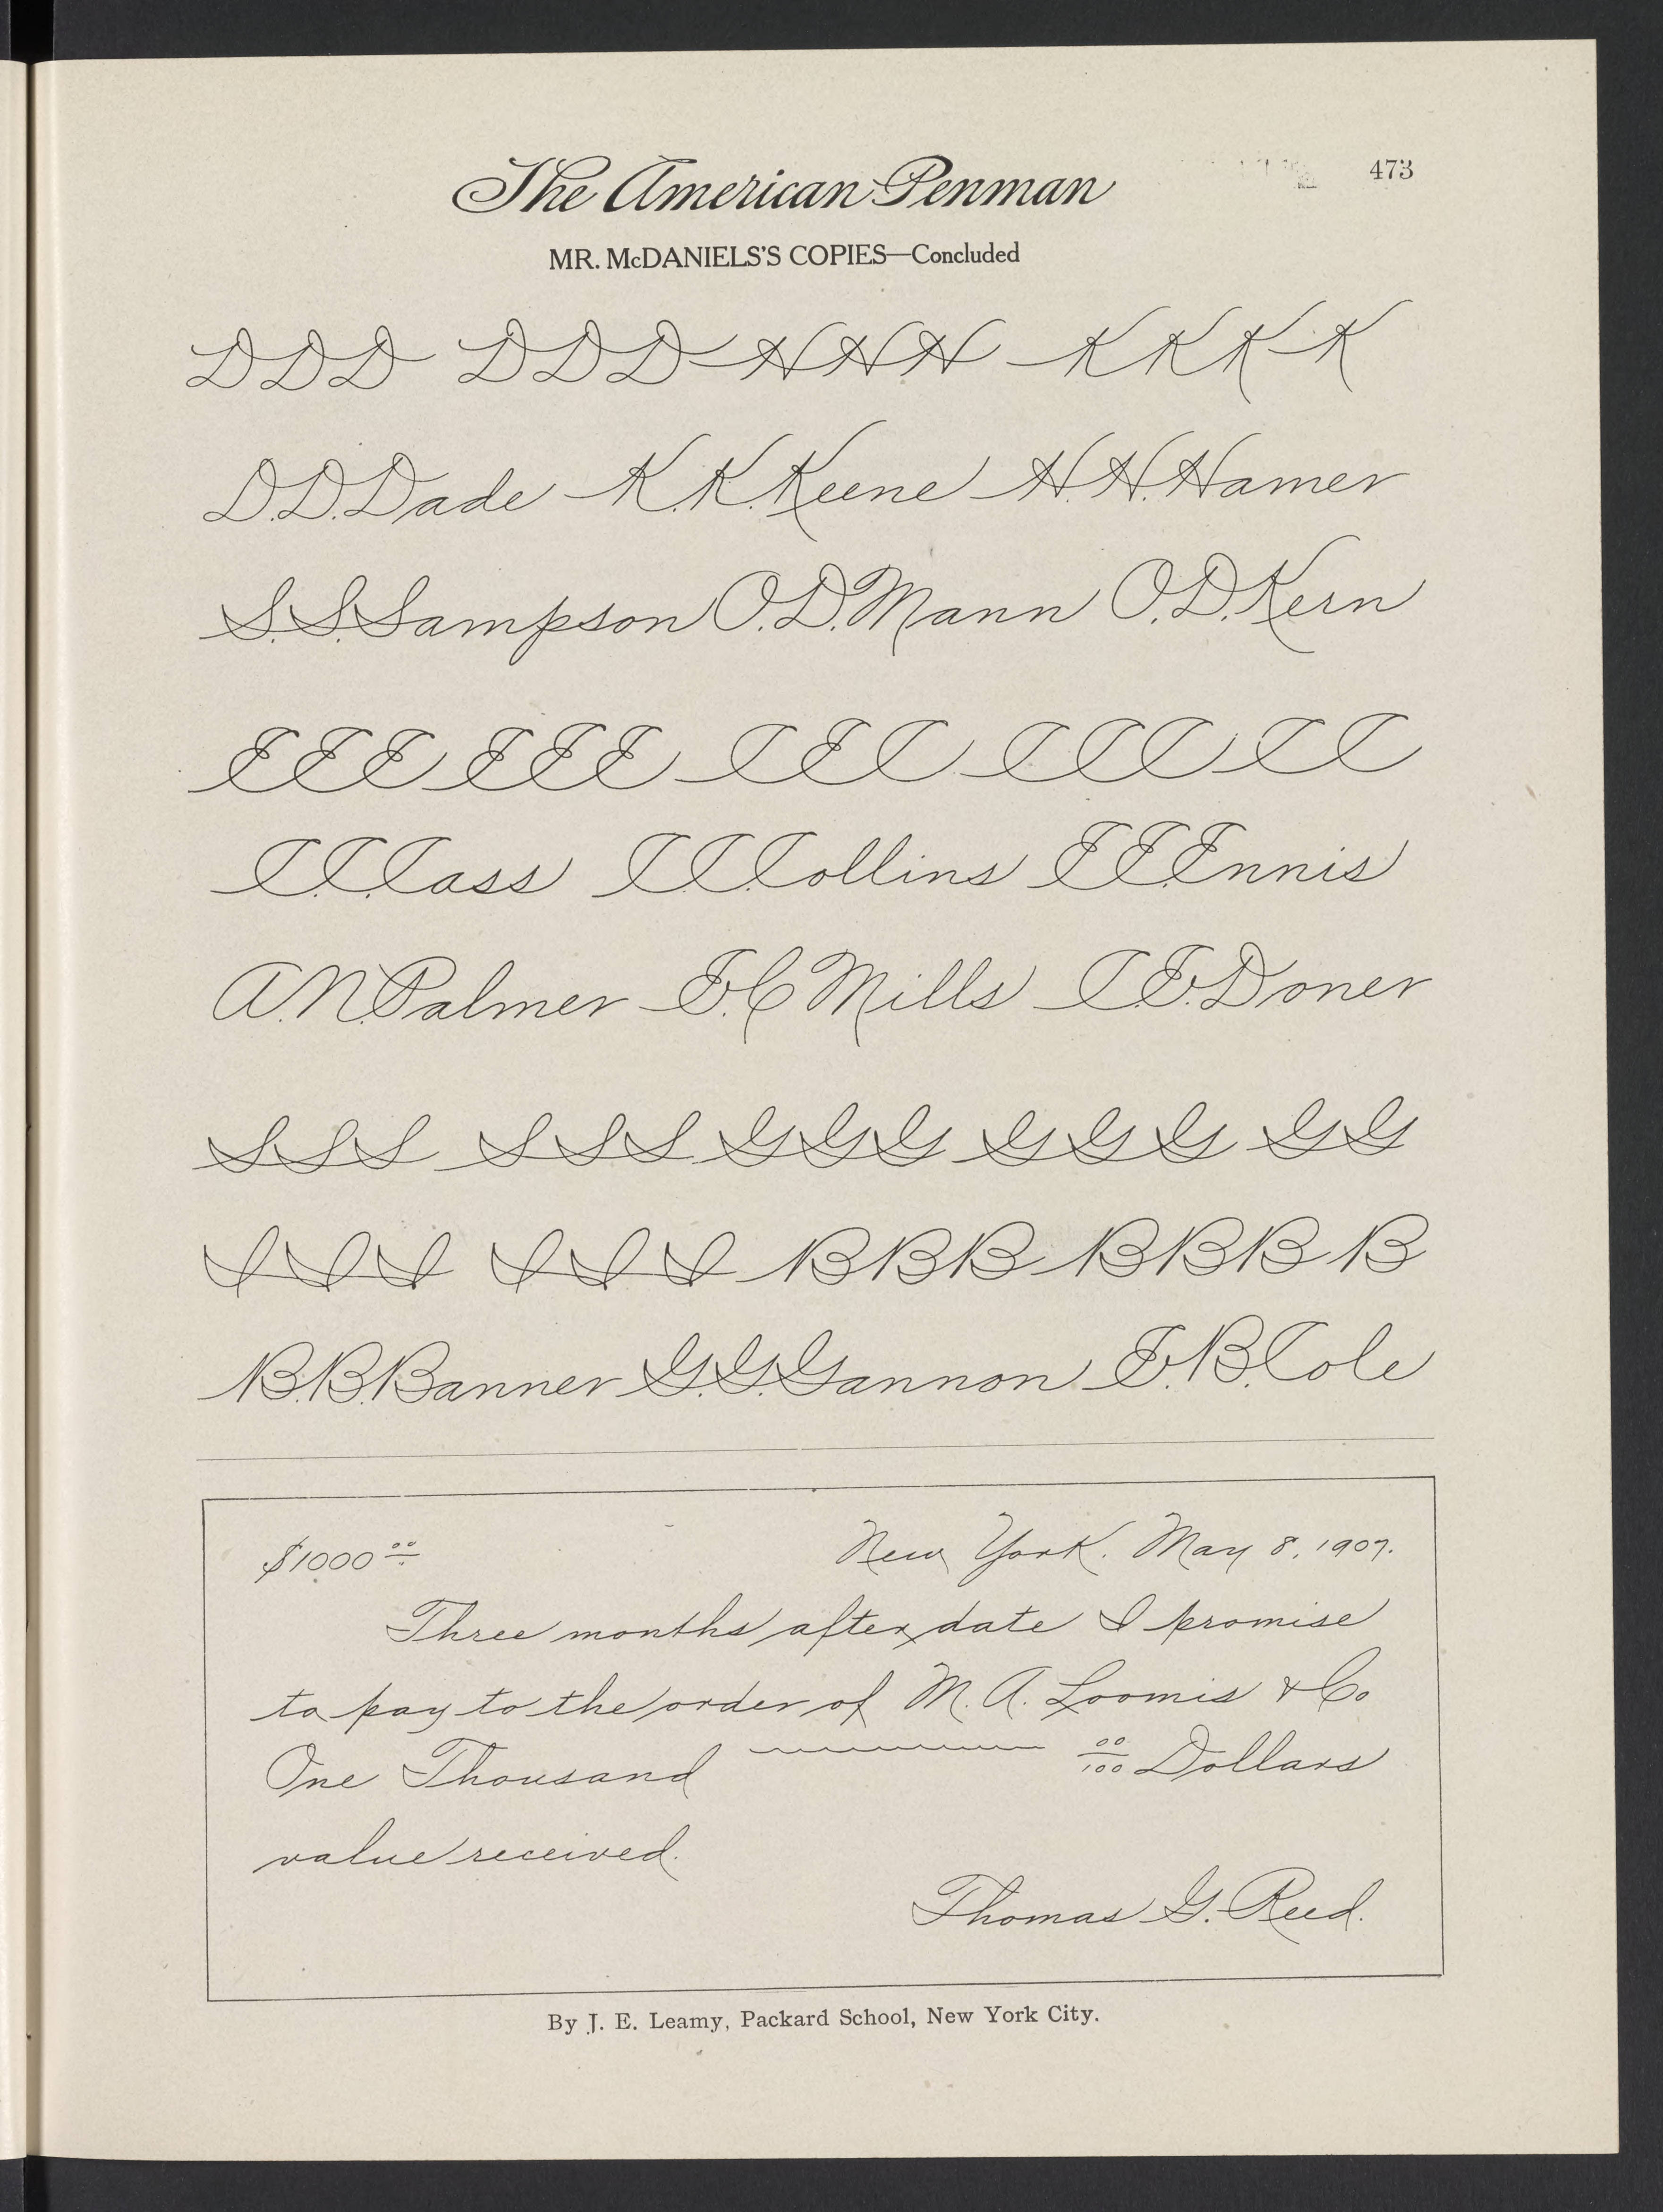 The American Penman
473
MR. McDANIELS'S COPIES—Concluded
D D D D D D H H H K K K K
D. D. Dade K. K. Keene H. H. Hamer
S. S. Sampson O. D. Mann O. D. Kern
E E E E E E C E C C C C C C
C. C. Cass C. C. Collins E. E. Ennis
A. N. Palmer E. C Mills C. E. Doner
S S S S S S G G G G G G G G
I I I I I I B B B B B B B
B. B. Banner G. G. Gannon E. B. Cole
$1000 00 New York. May 8, 1907.
Three months after date I promise
to pay to the order of M. A. Loomis & Co
One Thousand 00/100 Dollars
value received.
Thomas G. Reed.
By J. E. Leamy, Packard School, New York City.